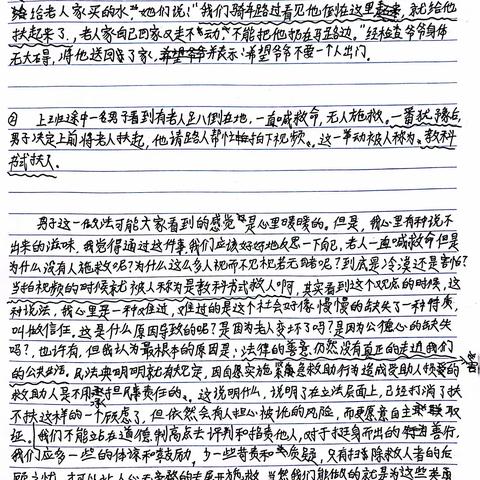 给老人家买的水,她们说:"我们骑车路过看见他倒在这里,就给他
扶起来了,老人家自己回家又走不动,不能把他扔在马路边。"经检查爷爷身体
无大碍,将他送回了家,并表示:希望爷爷不要一个人出门。
② 上班途中一名男子看到有老人趴倒在地,一直喊救命,无人施救。一番犹豫后
男子决定上前将老人扶起,他请路人帮忙拍下视频。这一举动被人称为:教科
书式扶人
男子这一做法可能大家看到的感觉是心里暖暖的。但是,我心里有种说不
出来的滋味,我觉得通过这件事我们应该好好地反思一下自己,老人一直喊救命但是
为什么没有人施救呢?为什么这么多人视而不见视若无睹呢?到底是冷漠还是害怕?
当拍视频的时候就被人称为是教科书式救人啊,其实看到这个观点的时候,这
种说法,我心里是一种难过,难过的是这个社会好像慢慢的缺失了一种特质,
叫做信任。这是什么原因导致的呢?是因为老人变坏了吗?是因为公德心的缺失
吗?也许有,但我认为最根本的原因是:法律的善意仍然没有真正的走进我们
的公共生活。民法典明明就有规定,因自愿实施紧急救助行为造成受助人损害的
救助人是不用承担民事责任的。这说明什么,说明了在立法层面上,已经打消了扶
不扶这样的一个顾虑了,但依然会有人担心被讹的风险,而更愿意自主联取
证。我们不能站在道德制高点去评判和指责他人,对于挺身而出的善行,
我们应多一些的体谅和鼓励,少一些苛责和质疑,只有扫除救人者的后